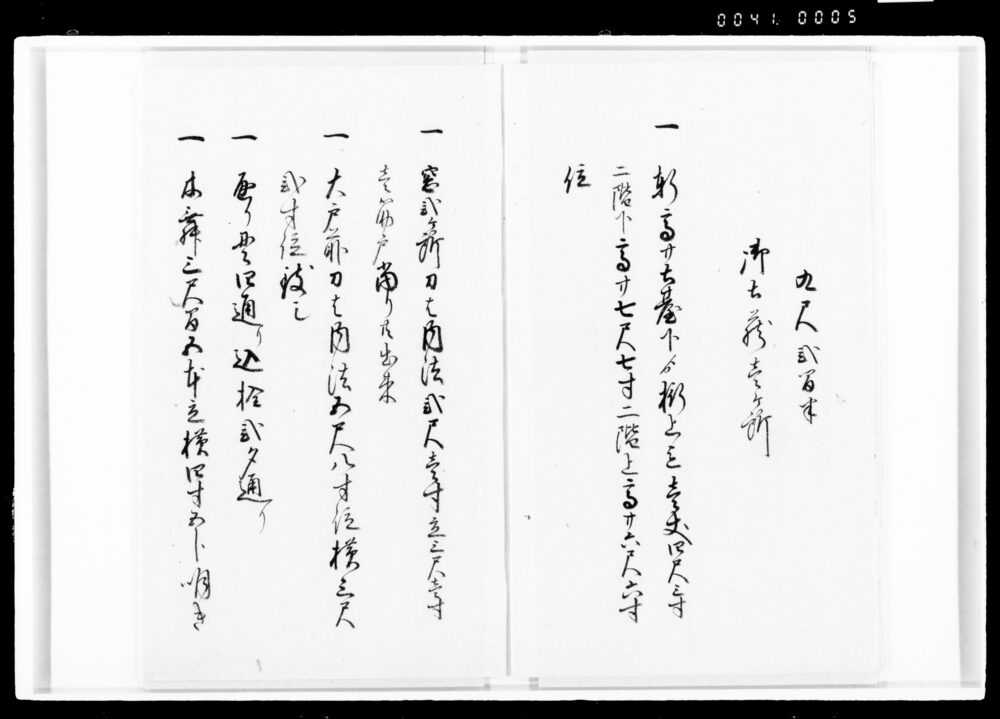 0041. 0005
九尺弐間半
御土蔵壱ヶ所
一 軒高サ土臺下ゟ桁上迄壱丈四尺三寸
二階下高サ七尺七寸二階上高サ六尺六寸
位
一 窓弐ヶ所刀は内法弐尺壱寸立三尺壱寸
壱筋戸当り共出来
一 大戸前刀は内法五尺八寸位横三尺
弐寸位
一 通り込栓弐タ通り
一 木舞三尺間五本立横四寸五分明き